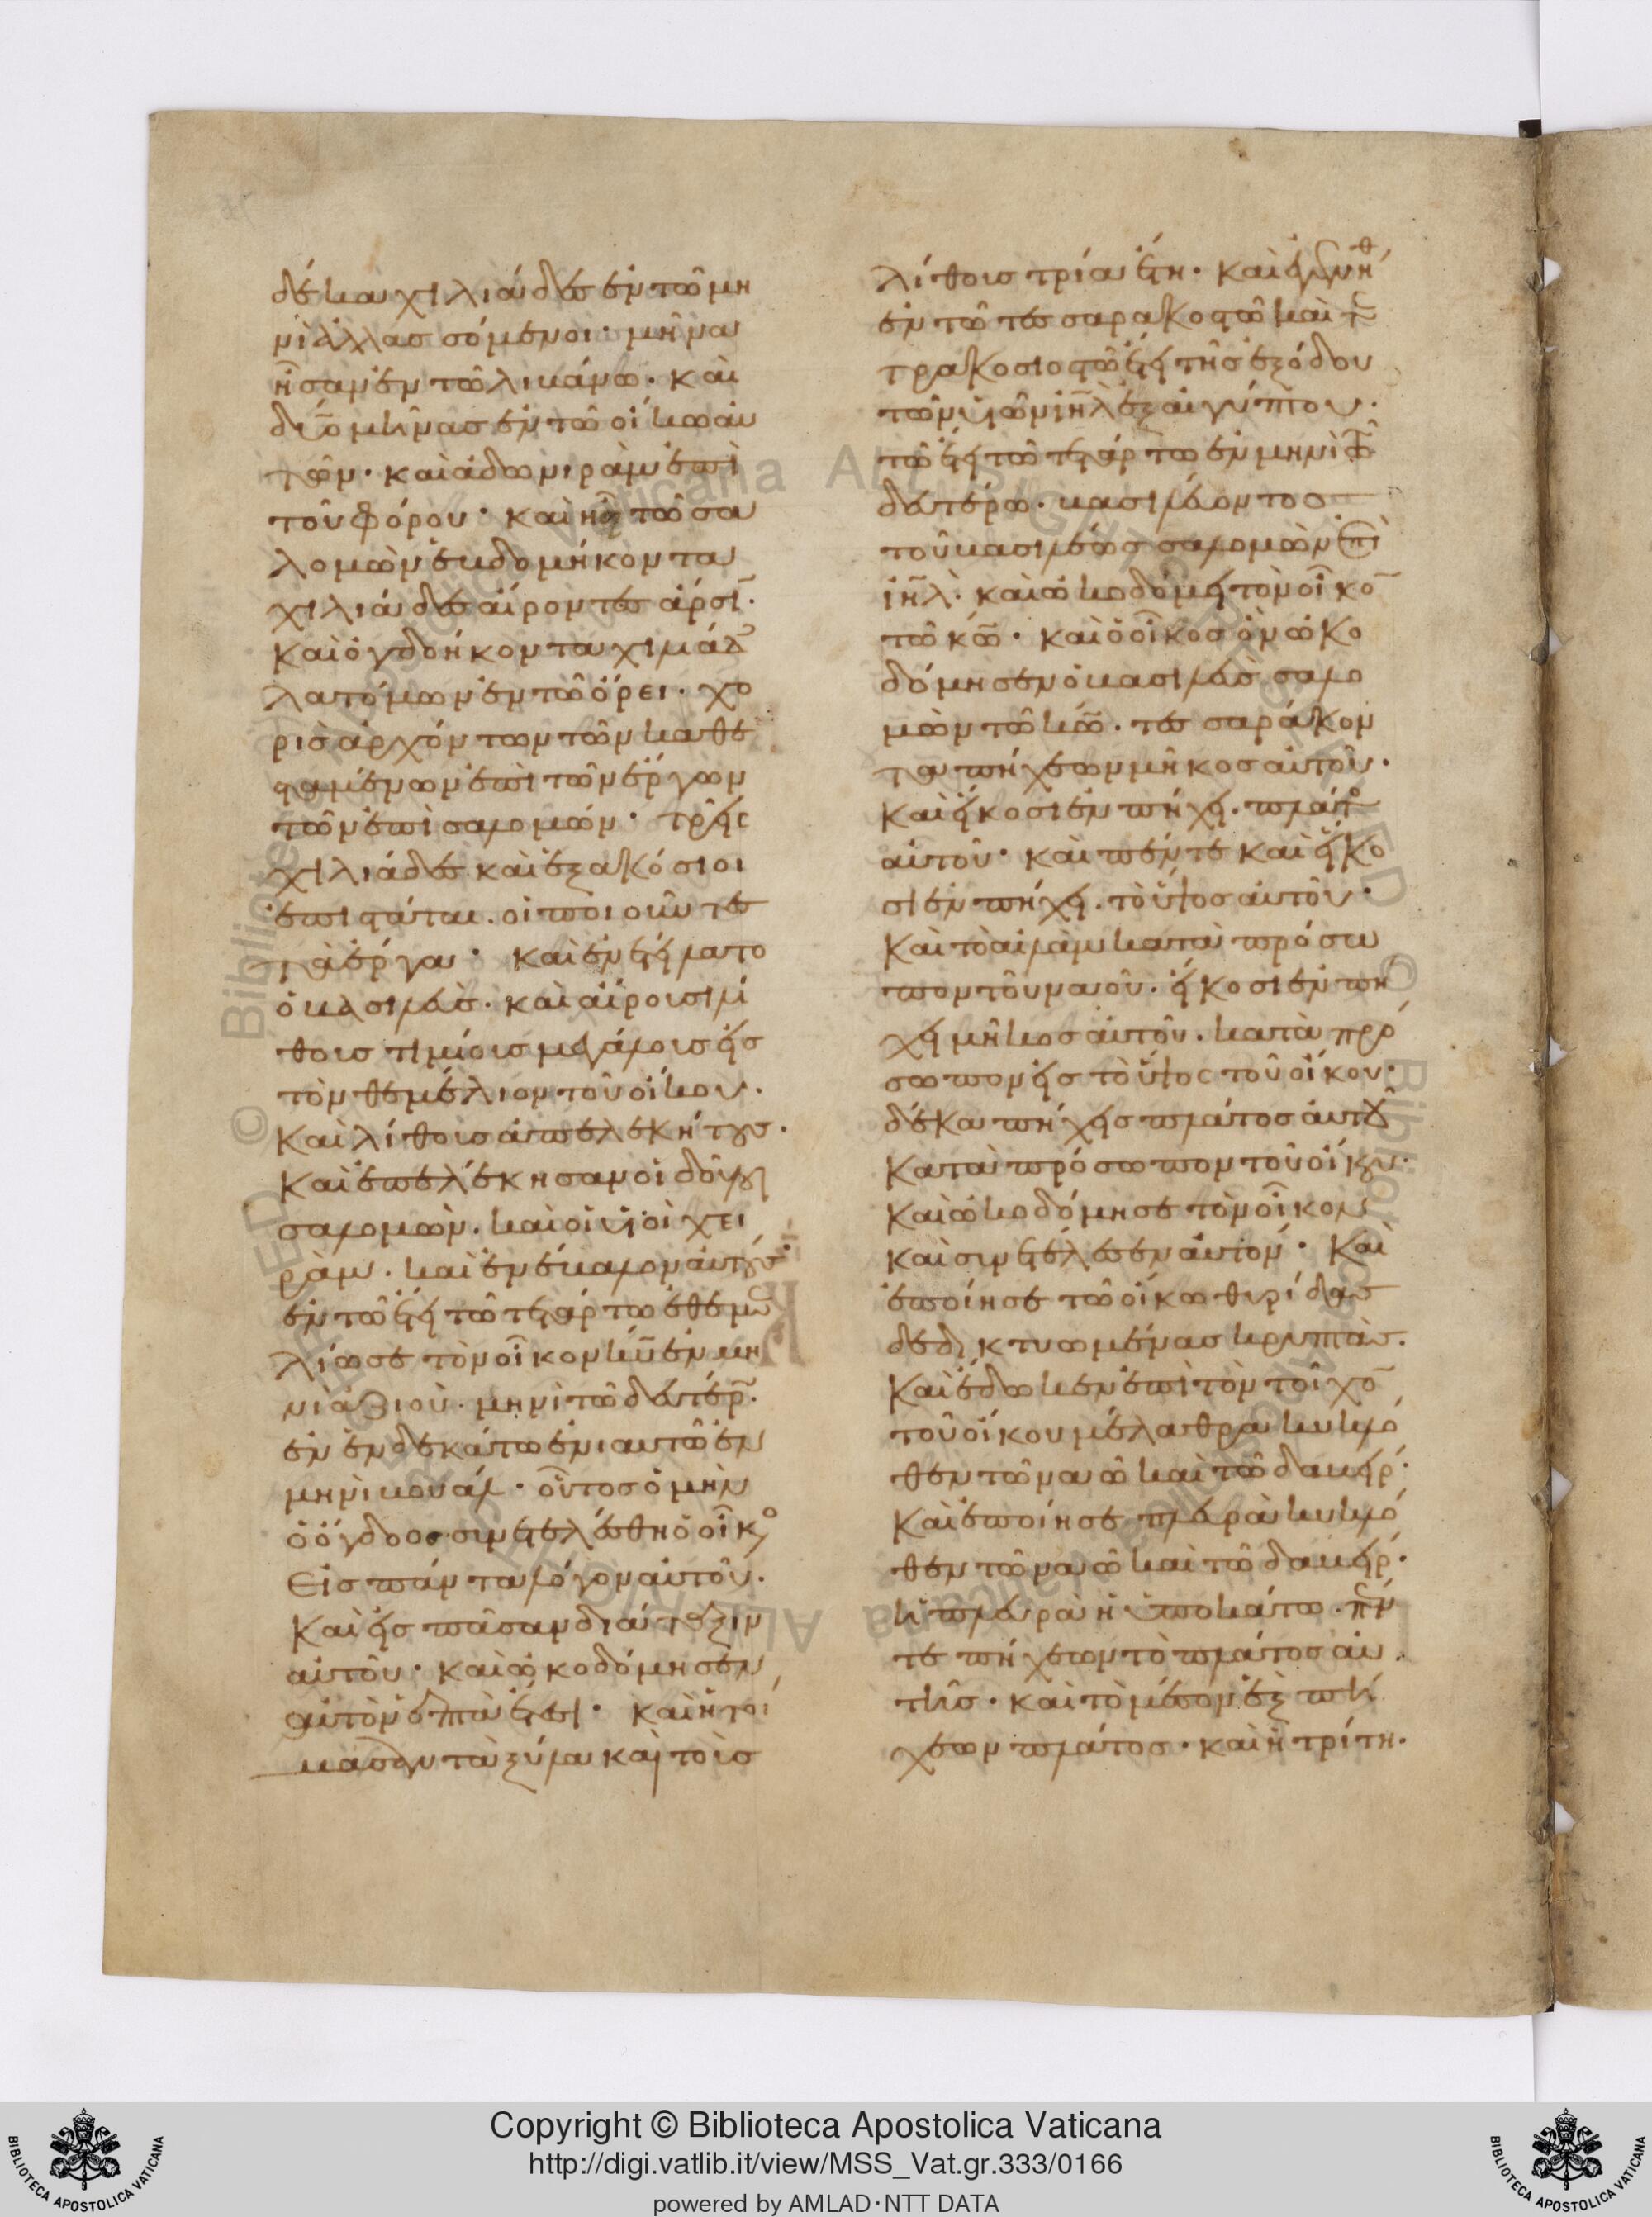 δέκα χιλιάδες ἐν τῶ μη
νὶ ἀλλασσόμενοι· μῆνα
ἦσαν ἐν τῶ λιβάνω· καὶ
δύο μῆνας ἐν τῶ οἴκω αὐ
τῶν· καὶ ἀδωνιρὰμ ἐπὶ
τοῦ φόρου· καὶ ἦν τῶ σα
λομὼν ἑβδομήκοντα
χιλιάδες αἴροντες ἄρσι̅·
καὶ ὀγδοήκοντα χιλιάδ
λατόμων ἐν τῶ ὄρει· χω
ρὶς ἀρχόντων τῶν καθε
σταμένων ἐπὶ τῶν ἔργων
τῶν ἐπὶ σαλομών· τρεῖς
χιλιάδες καὶ ἑξακόσιοι
ἐπιστάται· οἱ ποιοῦντες
τὰ ἔργα· καὶ ἐνετείλατο
ὁ βασιλεὺς· καὶ αἴρουσι λί
θους τιμίους μεγάλους εἰς
τὸν θεμέλιον τοῦ οἴκου·
καὶ λίθους ἀπελεκήτους·
καὶ ἐπελέκησαν οἱ δοῦλοι
σαλομὼν· καὶ οἱ υἱοὶ χει
ρὰμ· καὶ ἐνέβαλον αὐτούς·
ἐν τῶ ἔτει τῶ τετάρτω ἐθεμε
λίωσε τὸν οἶκον κ̅υ̅ ἐν μη
νὶ ζιοὺ· μηνὶ τῶ δευτέρ̅·
ἐν ἑνδεκάτω ἐνιαυτῶ ἐν
μηνὶ βουάλ· οὗτος ὁ μὴν
ὁ ὄγδοος συνετελέσθη ὁ οἶκο
εἰς πάντα λόγον αὐτοῦ·
καὶ εἰς πᾶσαν διάταξιν
αὐτοῦ· καὶ ὠκοδόμησεν
αὐτὸν ἑπτὰ ἔτεσι· καὶ ἡτοί
μασαν τὰ ξύλα καὶ τοὺς
λίθους τρία ἔτη· καὶ ἐγενήθ
ἐν τῶ τεσσαρακοστῶ καὶ τε
τρακοσιοστῶ ἔτει τῆς ἐξόδου
τῶν υἱῶν ι̅η̅λ̅ ἐξ αἰγύπτου·
τῶ ἔτει τῶ τετάρτω ἐν μηνὶ τῶ
δευτέρω· βασιλεύοντος
τοῦ βασιλέως σαλομὼν ἐπὶ
ι̅η̅λ̅· καὶ ὠκοδόμει τὸν οἶκο̅
τῶ κ̅ω̅· καὶ ὁ οἶκος ὃν ὠκο
δόμησεν ὁ βασιλεὺς σαλο
μὼν τῶ κ̅ω̅· τεσσαράκον
τα πήχεων μῆκος αὐτοῦ·
καὶ εἴκοσι ἐν πήχει· πλάτο
αὐτοῦ· καὶ πέντε καὶ εἴκο
σι ἐν πήχει· τὸ ὕψος αὐτοῦ·
καὶ τὸ αἰλὰμ κατὰ πρόσω
πον τοῦ ναοῦ· εἴκοσι ἐν πή
χει μῆκος αὐτοῦ· κατὰ πρό
σωπον εἰς τὸ ὕψος τοῦ οἴκου·
δέκα πήχεις πλάτος αὐτοῦ
κατὰ πρόσωπον τοῦ οἴκου·
καὶ ὠκοδόμησε τὸν οἶκον
καὶ συνετέλεσεν αὐτόν· καὶ
ἐποίησε τῶ οἴκω θυρίδας
δεδικτυωμένας κρυπτὰς·
καὶ ἔδωκεν ἐπὶ τὸν τοῖχο̅
τοῦ οἴκου μέλαθρα κυκλό
θεν τῶ ναῶ καὶ τῶ δαβείρ·
καὶ ἐποίησε πλευρὰ κυκλό
θεν τῶ ναῶ καὶ τῶ δαβείρ·
ἡ πλευρὰ ἡ ὑποκάτω· πέν
τε πήχεων τὸ πλάτος αὐ
τῆς· καὶ τὸ μέσον ἓξ πή
χεων πλάτος· καὶ ἡ τρίτη·
Copyright © Biblioteca Apostolica Vaticana
http://digi.vatlib.it/view/MSS_Vat.gr.333/0166
powered by AMLAD·NTT DATA